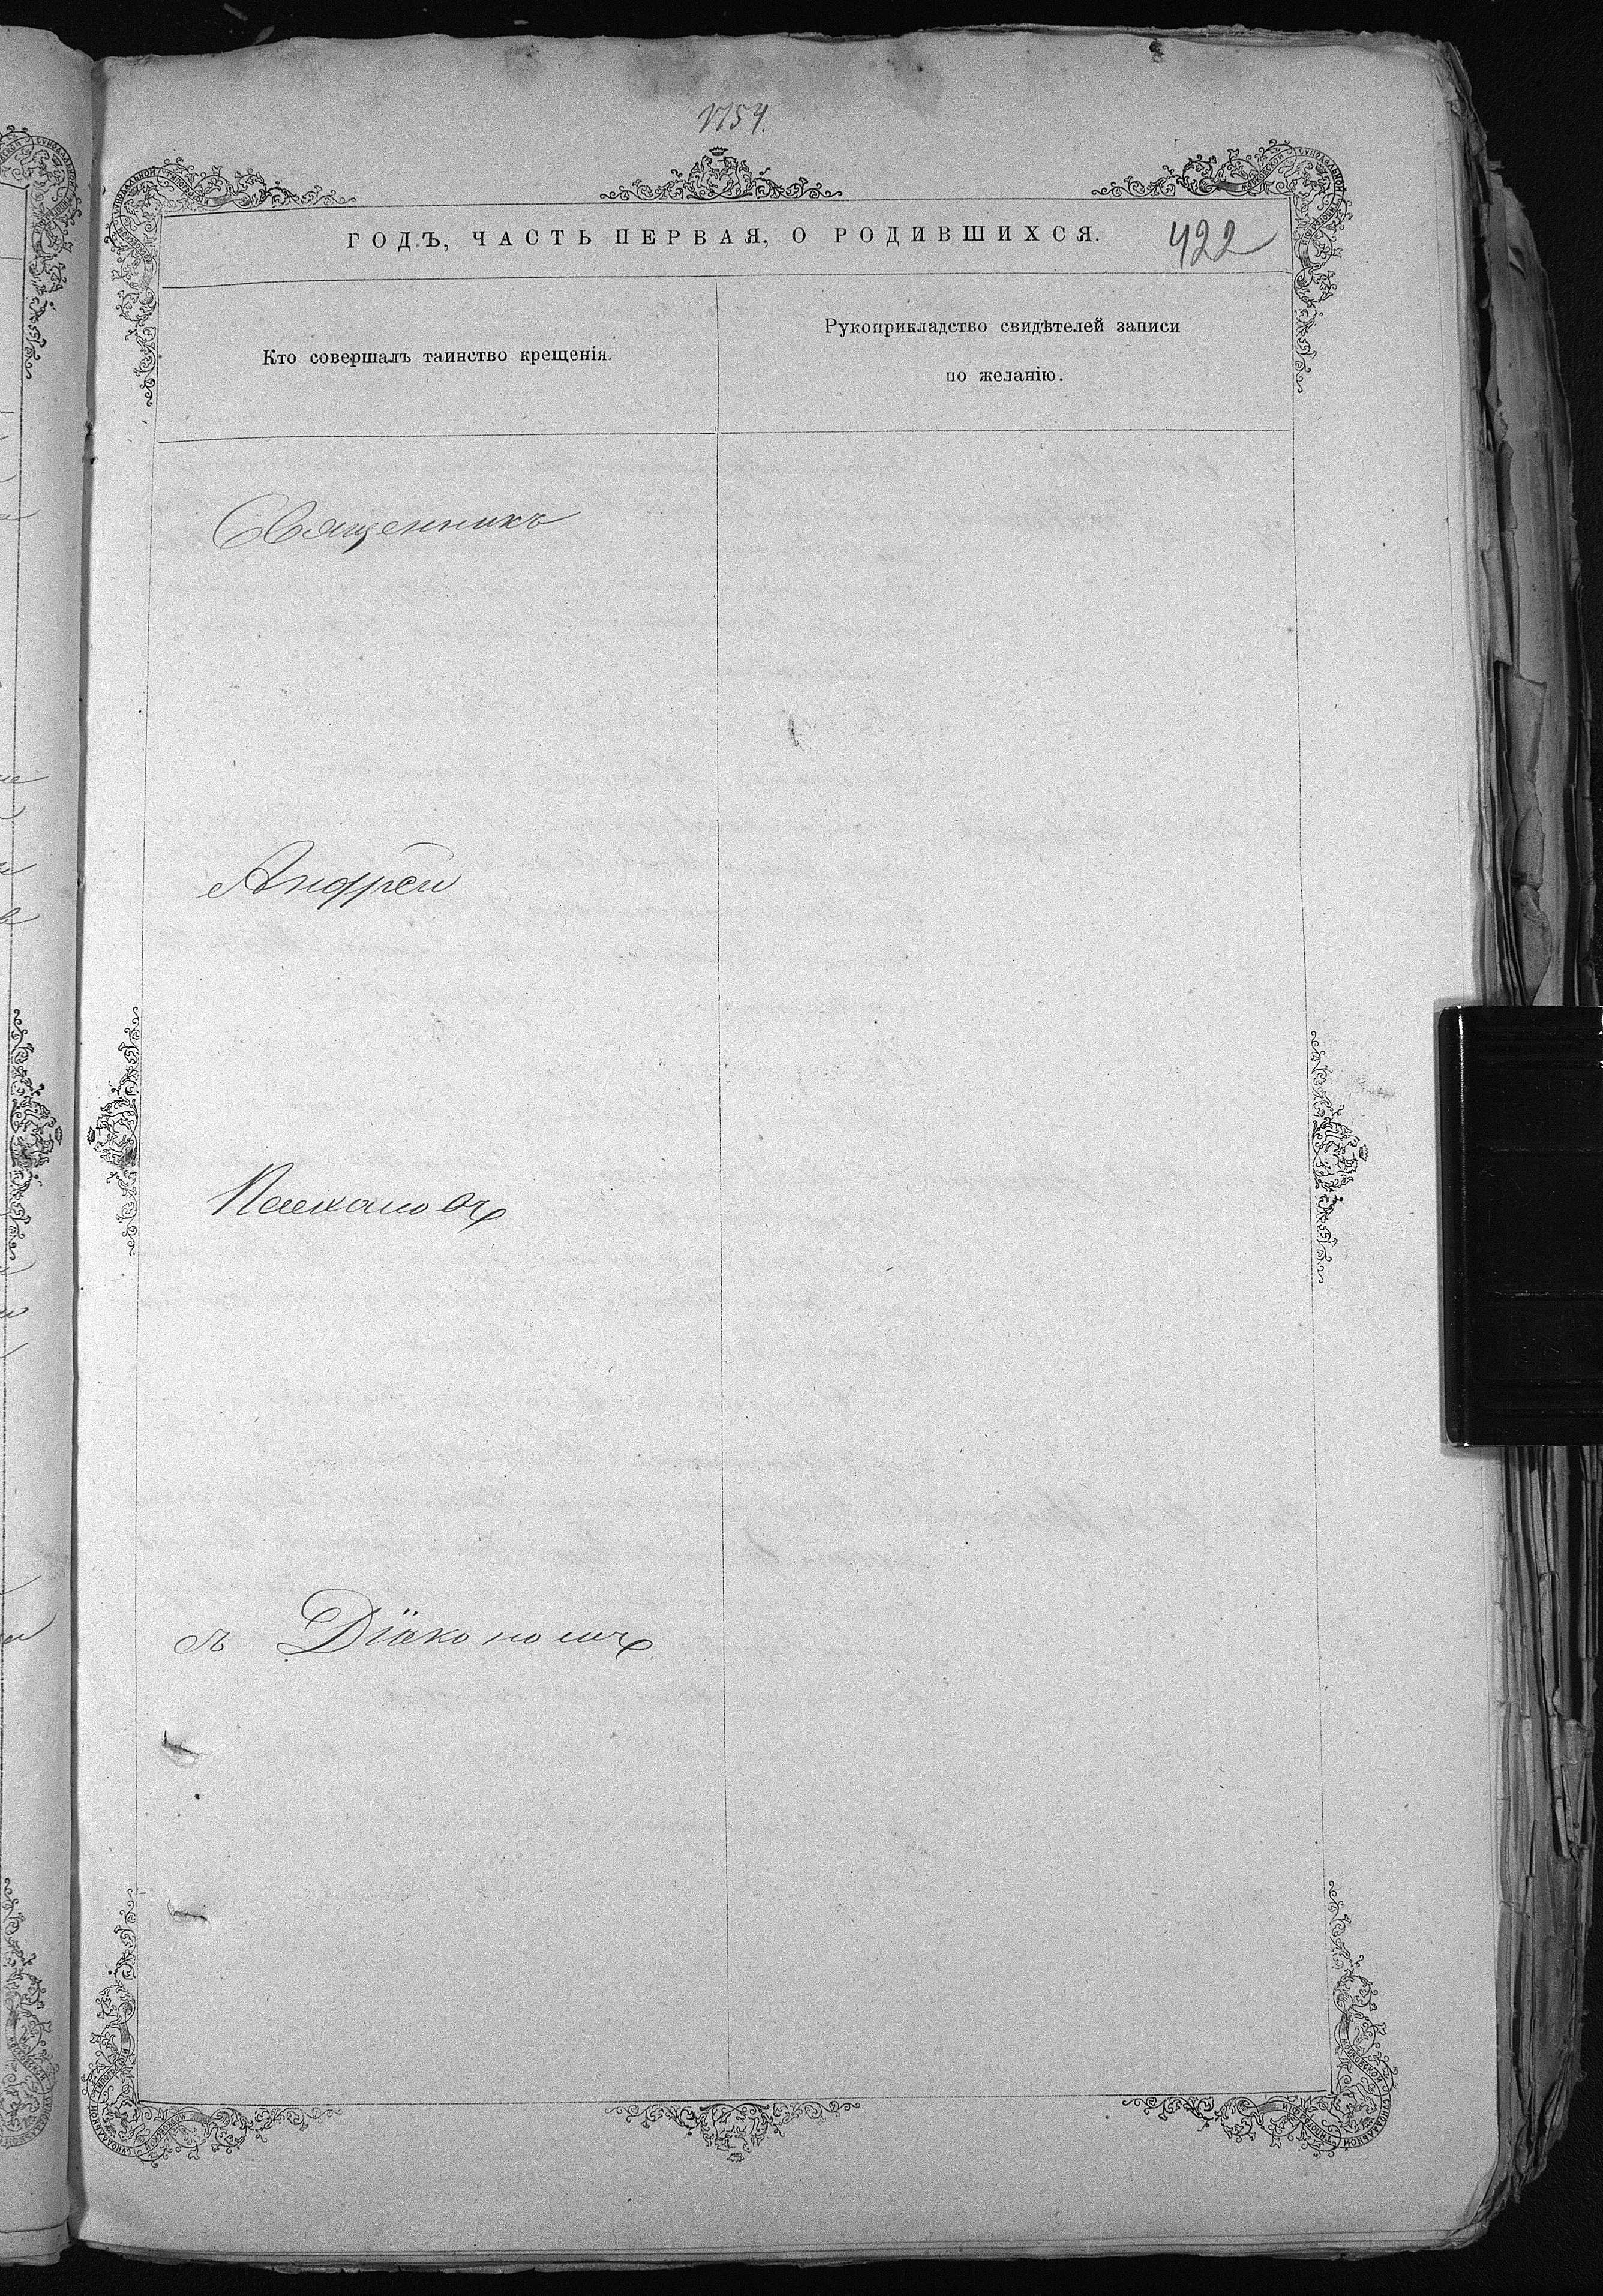 1754.
ГОДЪ, ЧАСТЬ ПЕРВАЯ, О РОДИВШИХСЯ.
422
Кто совершалъ таинство крещенія.
Рукоприкладство свидѣтелей записи
по желанію.
Священникъ
Андрей
съ Діакономъ